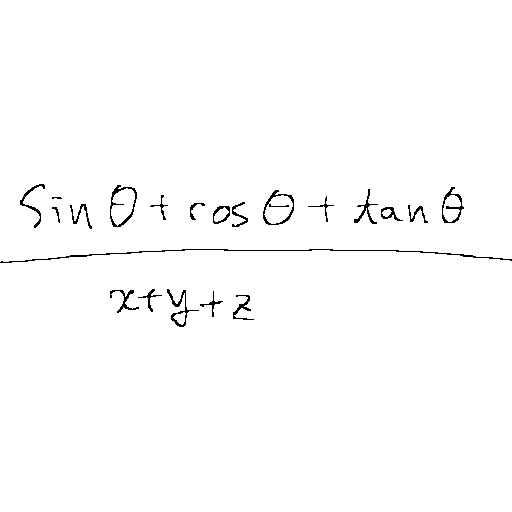 sin θ + cos θ + tan θ
x+y+z